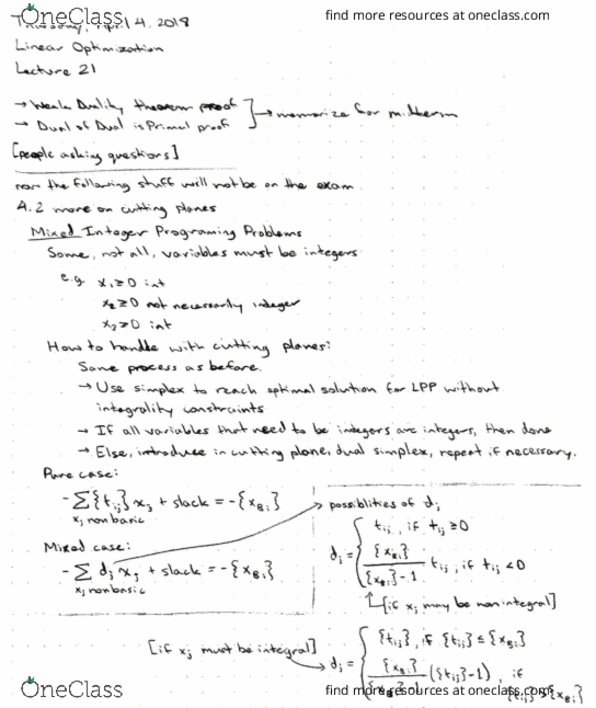 find more resources at oneclass.com
OneClass
Thursday, April 4, 2018
Linear Optimization
Lecture 21
→ Weak Duality theorem proof
→ Dual of Dual is Primal proof
→ memorize for midterm
[people asking questions]
now the following stuff will not be on the exam
4.2 more on cutting planes
Mixed Integer Programing Problems
Some, not all, variables must be integers
e.g. x₁≥0 int
x₂≥0 not necessarily integer
x₃≥0 int
How to handle with cutting planes:
Same process as before.
→ Use simplex to reach optimal solution for LPP without
integrality constraints
→ If all variables that need to be integers are integers, then done
→ Else, introduce in cutting plane, dual simplex, repeat if necessary.
Pure case:
-Σ{tᵢⱼ}xⱼ + slack = -{x_Bi}
xⱼ nonbasic
Mixed case:
-Σ dⱼ xⱼ + slack = -{x_Bi}
xⱼ nonbasic
possiblities of dⱼ
dⱼ = { tᵢⱼ, if tᵢⱼ ≥0
{x_Bi} / ({x_Bi}-1) tᵢⱼ, if tᵢⱼ <0
[if xⱼ may be nonintegral]
[if xⱼ must be integral]
dⱼ = { {tᵢⱼ}, if {tᵢⱼ} ≤ {x_Bi}
{x_Bi} ({tᵢⱼ}-1), if
OneClass
find more resources at oneclass.com